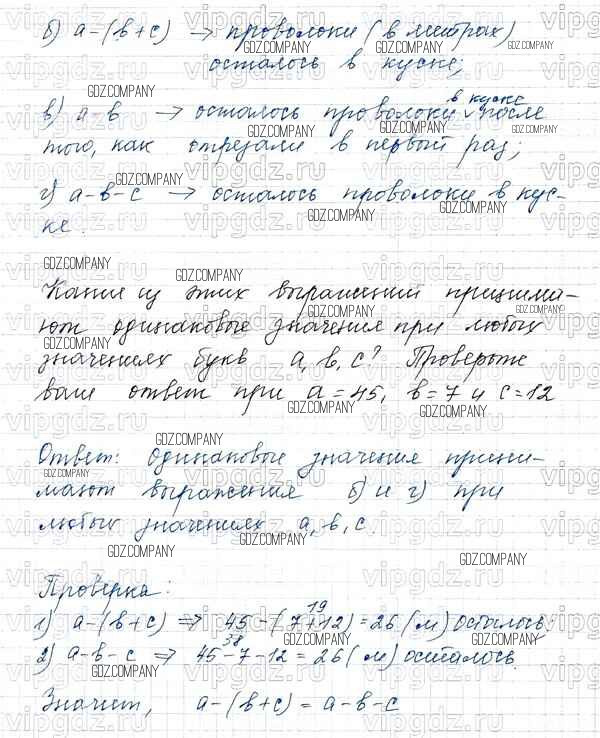 б) a-(в+с) → проволоки (в метрах)
осталось в куске;
в) a-в → осталось проволоки в куске после
того, как отрезали в первый раз;
г) a-в-с → осталось проволоки в кус-
ке.
Какие из этих выражений принима-
ют одинаковые значения при любых
значениях букв a, в, с? Проверьте
ваш ответ при a=45, в=7 и с=12
Ответ: одинаковые значения прини-
мают выражения б) и г) при
любых значениях a, в, с.
Проверка:
19
1) a-(в+с) ⇒ 45-(7+12)=26(м) осталось;
38
2) a-в-с ⇒ 45-7-12=26(м) осталось.
Значит, a-(в+с)=a-в-с
GDZ.COMPANY
vipgdz.ru